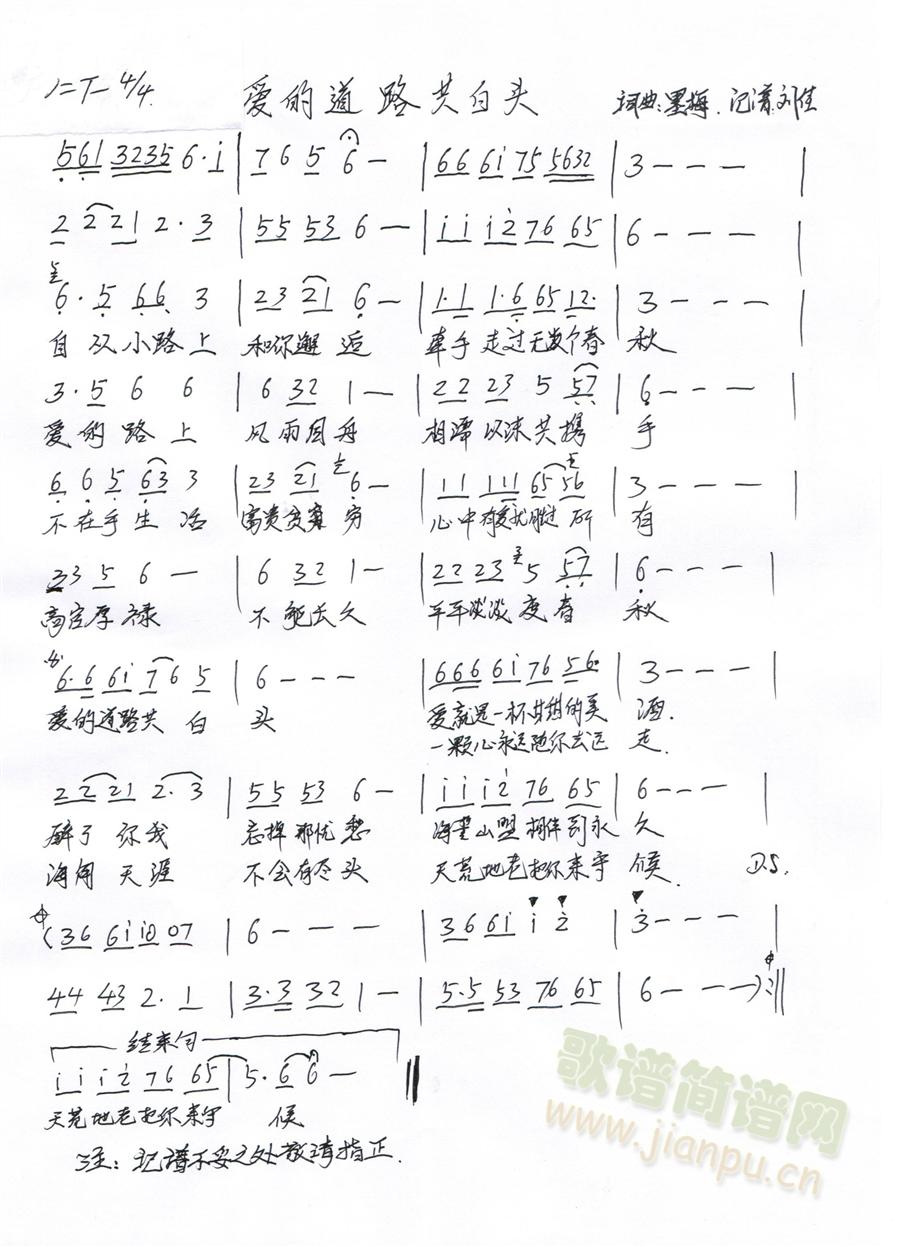 1=F 4/4 爱的道路共白头 词曲:墨梅.记谱刘佳
561 3235 6·i | 7 6 5 6 — | 66 6i 75 5632 | 3 — — — |
2 2 2 1 2·3 | 55 53 6 — | i i i 2 76 65 | 6 — — — |
6·5 66 3 | 23 21 6 — | 1·1 1·6 65 12· | 3 — — — |
自从小路上 和你邂逅 牵手走过无数个春 秋
3·5 6 6 | 6 32 1 — | 22 23 5 57 | 6 — — — |
爱的路上 风雨同舟 相濡以沫共携 手
6 6 5 63 3 | 23 21 6 — | 11 111 65 56 | 3 — — — |
不在乎生活 富贵贫穷 心中有爱 胜过所 有
3 3 5 6 — | 6 32 1 — | 22 23 5 57 | 6 — — — |
高官厚禄 不能长久 平平淡淡度春 秋
6·6 6i 7 6 5 | 6 — — — | 666 6i 76 56· | 3 — — — |
爱的道路共白 头 爱就是一杯甘甜的美 酒.
一颗心永远随你去远 走.
22 21 2·3 | 55 53 6 — | i i i 2 76 65 | 6 — — — |
醉了你我 忘掉那忧愁 海誓山盟相伴到永 久
海角天涯 不会有尽头 天荒地老把你来守 候. D.S.
(36 6i i0 07 | 6 — — — | 36 6i i 2 | 3 — — — |
44 43 2·1 | 3·3 32 1 — | 5·5 53 76 65 | 6 — — —):‖
结束句
i i i 2 76 65 | 5·6 6 — ‖
天荒地老把你来守 候
注:记谱不妥之处敬请指正.
歌谱简谱网
www.jianpu.cn